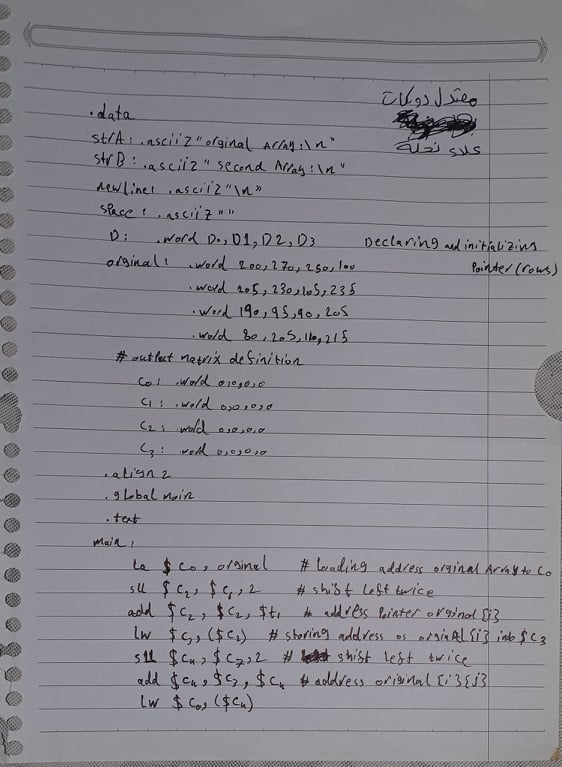 معتدل دويكات
علاء نحلة
.data
strA: .asciiz "orginal Array:\n"
strB: .asciiz "second Array:\n"
newline: .asciiz "\n"
space: .asciiz ""
D: .word D0, D1, D2, D3 Declaring and initializing
Pointer (rows)
orginal: .word 200, 270, 250, 100
.word 205, 230, 105, 235
.word 190, 95, 90, 205
.word 80, 205, 110, 215
# output matrix definition
C0: .word 0,0,0,0
C1: .word 0,0,0,0
C2: word 0,0,0,0
C3: word 0,0,0,0
.align 2
.global main
.text
main:
la $C0, orginal # loading address orginal Array to C0
sll $C2, $C1, 2 # shift left twice
add $C2, $C2, $t1 # address Pointer orginal {i}
lw $C3, ($C2) # storing address os orginal {i} into $C3
sll $C4, $C7, 2 # shift left twice
add $C4, $C3, $C4 # address original {i}{j}
lw $C0, ($C4)